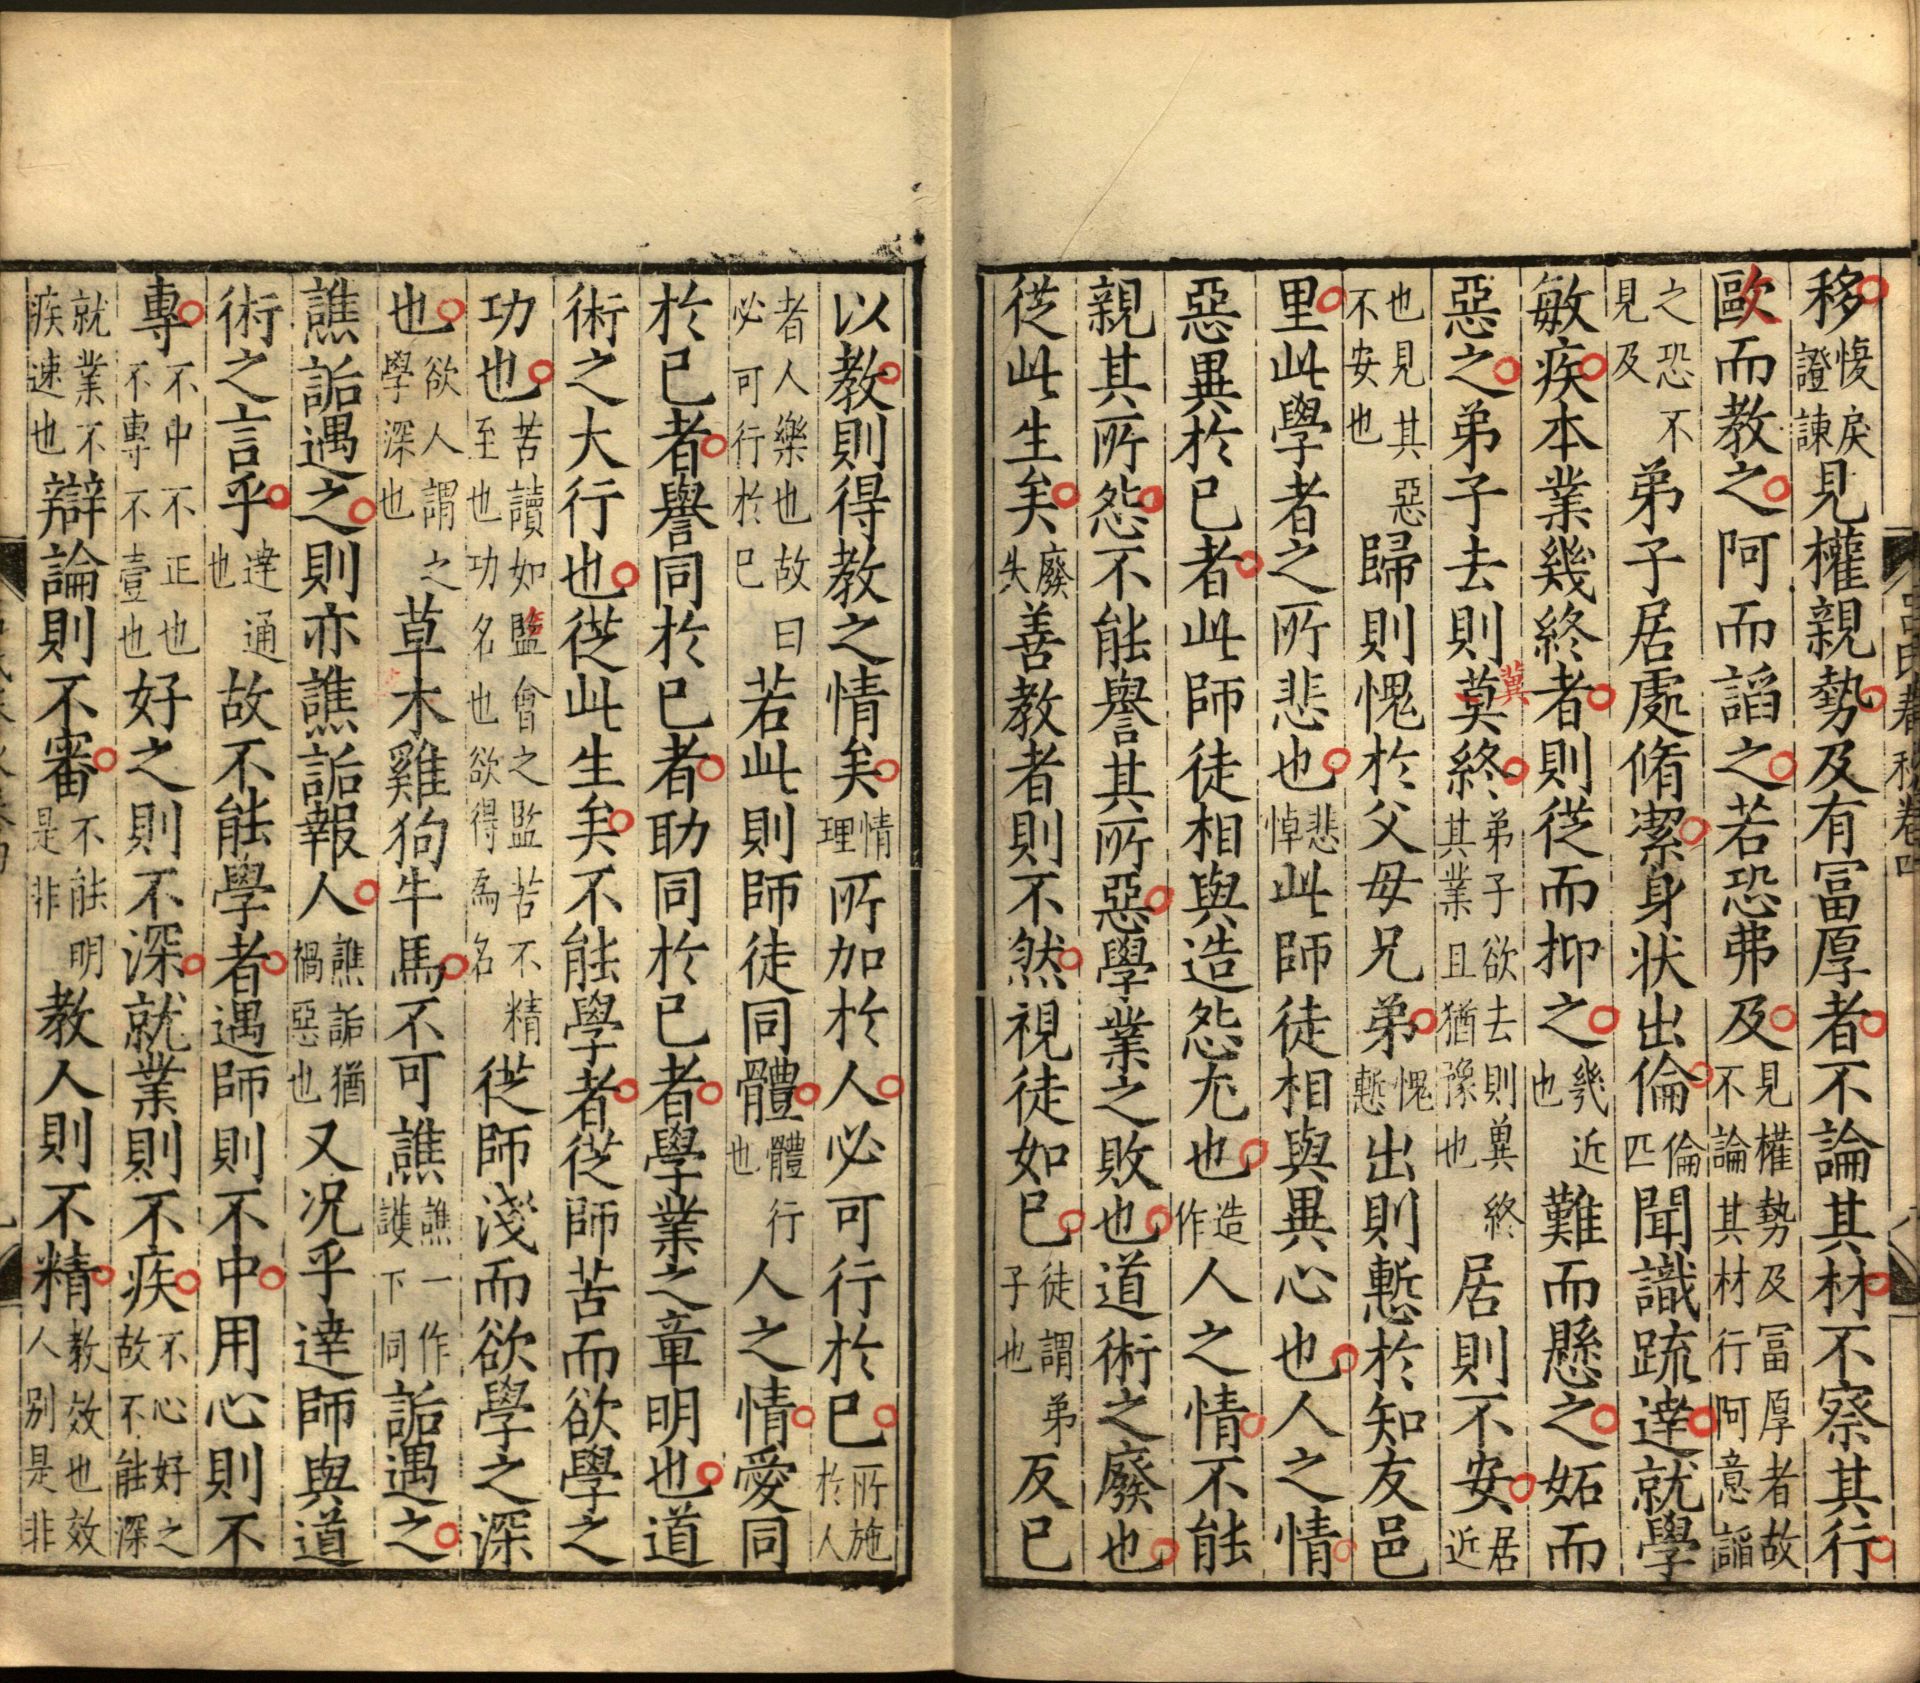 移愎戾證諫見權親勢及有冨厚者不論其材不察其行
歐而教之阿而謟之若恐弗及見權勢及冨厚者故不論其材行阿意謟
之恐不見及弟子居處脩潔身状出倫倫匹聞識疏達就學
敏疾本業幾終者則從而抑之㡬近也難而懸之妬而
惡之弟子去則莫兾終弟子欲去則兾終其業且猶豫也居則不安居近
也見其惡不安也歸則愧於父母兄弟愧慙出則慙於知友邑
里此學者之所悲也悲悼此師徒相與異心也人之情
惡異於已者此師徒相與造怨尤也造作人之情不能
親其所怨不能譽其所惡學業之敗也道術之廢也
從此生矣廢失善教者則不然視徒如已徒謂弟子也反已
以教則得教之情矣情理所加於人必可行於已所施於人
者人樂也故曰必可行於已若此則師徒同體體行也人之情愛同
於已者譽同於已者助同於已者學業之章明也道
術之大行也從此生矣不能學者從師苦而欲學之
功也苦讀如盬會之監苦不精至也功名也欲得爲名從師淺而欲學之深
也欲人謂之學深也草木雞狗牛馬不可譙譙一作謢下同詬遇之
譙詬遇之則亦譙詬報人譙詬猶禍惡也又况乎達師與道
術之言乎達通也故不能學者遇師則不中用心則不
專不中不正也不專不壹也好之則不深就業則不疾不心好之故不能深
就業不疾速也辯論則不審不能明是非教人則不精教效也效人别是非
吕氏春秋卷四